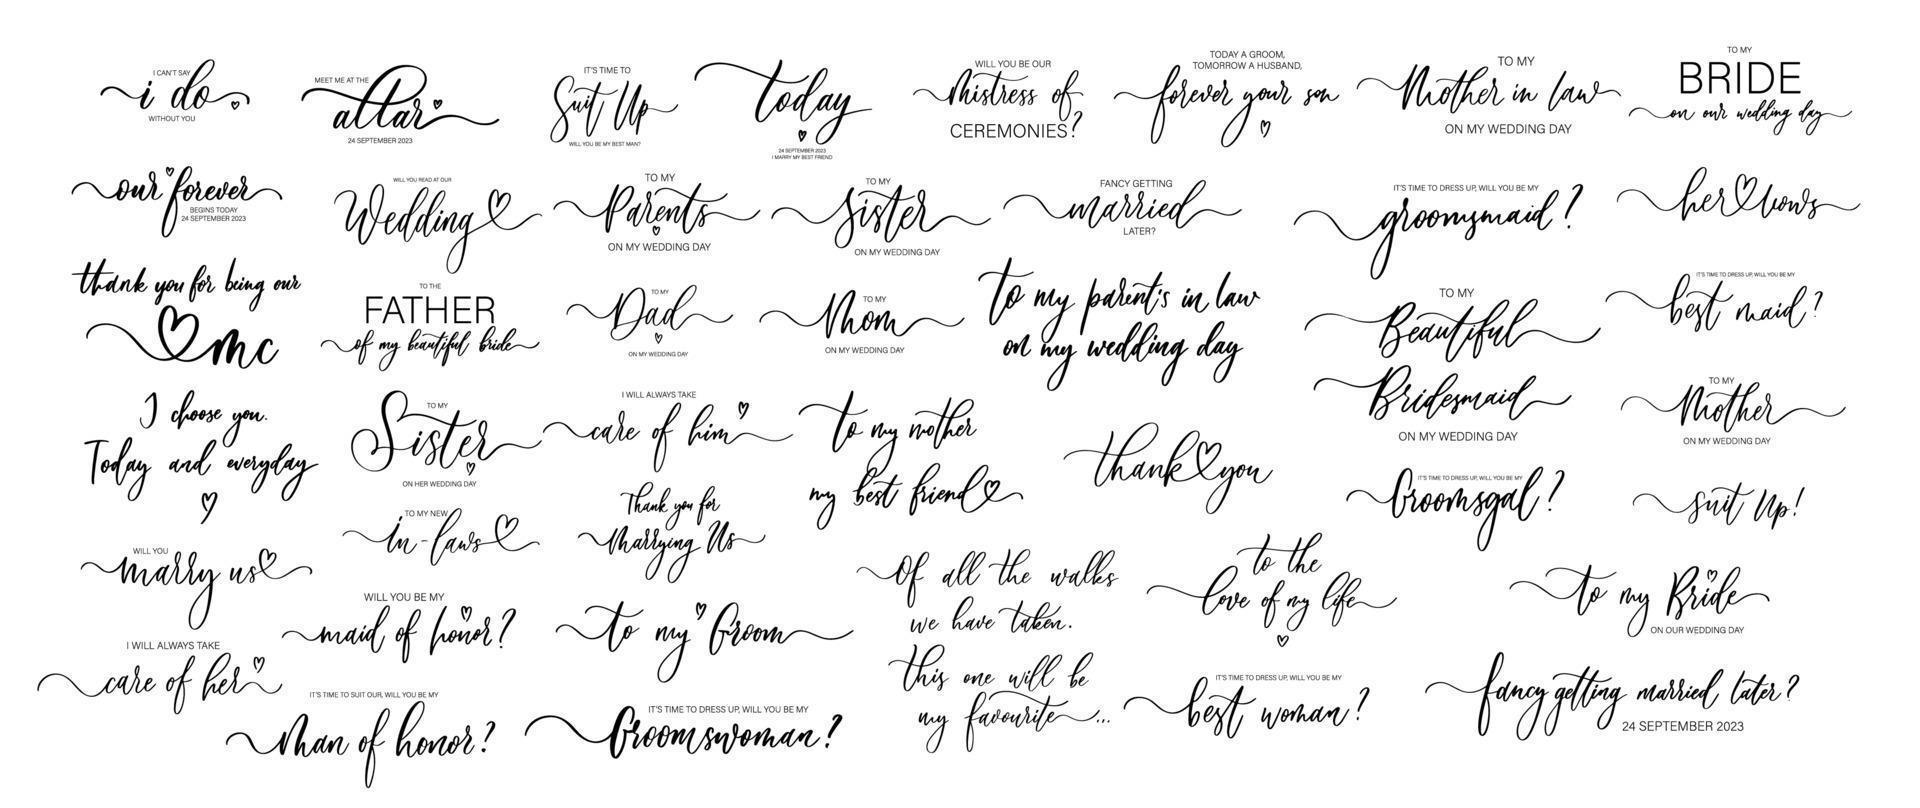 I CAN'T SAY
i do
WITHOUT YOU
MEET ME AT THE
altar
24 SEPTEMBER 2023
IT'S TIME TO
Suit Up
WILL YOU BE MY BEST MAN?
today
24 SEPTEMBER 2023
I MARRY MY BEST FRIEND
WILL YOU BE OUR
Mistress of
CEREMONIES?
TODAY A GROOM,
TOMORROW A HUSBAND,
forever your son
TO MY
Mother in law
ON MY WEDDING DAY
TO MY
BRIDE
on our wedding day
our forever
BEGINS TODAY
24 SEPTEMBER 2023
WILL YOU READ AT OUR
Wedding
TO MY
Parents
ON MY WEDDING DAY
TO MY
Sister
ON MY WEDDING DAY
FANCY GETTING
married
LATER?
IT'S TIME TO DRESS UP, WILL YOU BE MY
groomsmaid?
her vows
thank you for being our
mc
TO THE
FATHER
of my beautiful bride
TO MY
Dad
ON MY WEDDING DAY
TO MY
Mom
ON MY WEDDING DAY
To my parent's in law
on my wedding day
TO MY
Beautiful
Bridesmaid
ON MY WEDDING DAY
IT'S TIME TO DRESS UP, WILL YOU BE MY
best maid?
I choose you.
Today and everyday
TO MY
Sister
ON HER WEDDING DAY
I WILL ALWAYS TAKE
care of him
To my mother
my best friend
thank you
TO MY
Mother
ON MY WEDDING DAY
IT'S TIME TO DRESS UP, WILL YOU BE MY
Groomsgal?
Suit Up!
TO MY NEW
in-laws
Thank you for
Marrying Us
WILL YOU
marry us
WILL YOU BE MY
maid of honor?
to my Groom
Of all the walks
we have taken.
this one will be
my favourite...
to the
love of my life
to my Bride
ON OUR WEDDING DAY
I WILL ALWAYS TAKE
care of her
IT'S TIME TO SUIT OUR, WILL YOU BE MY
Man of honor?
IT'S TIME TO DRESS UP, WILL YOU BE MY
Groomswoman?
IT'S TIME TO DRESS UP, WILL YOU BE MY
best woman?
fancy getting married later?
24 SEPTEMBER 2023